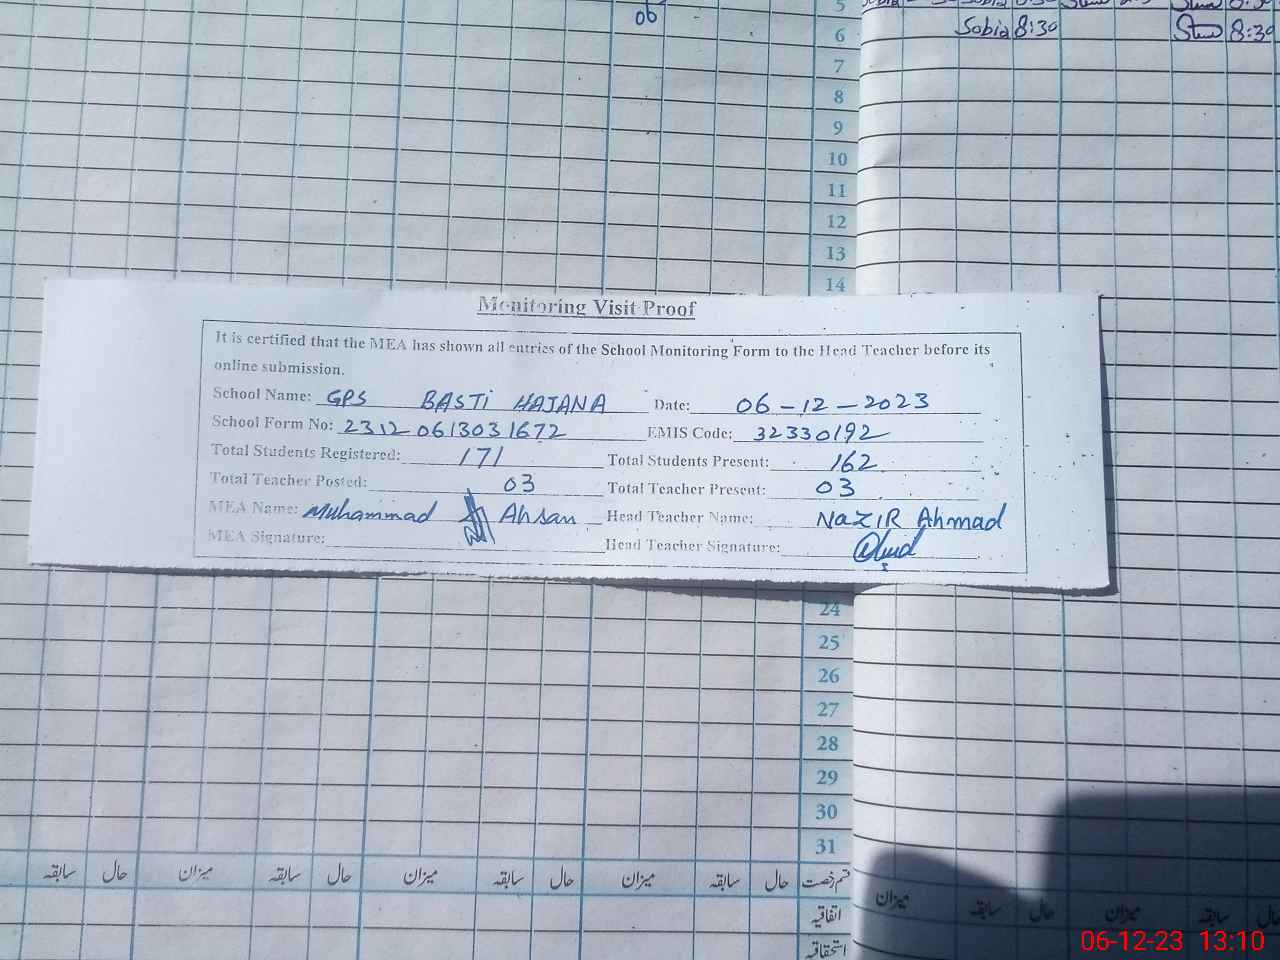 06
5
6
Sobia 8:30
8:30
7
8
9
10
11
12
13
14
Monitoring Visit Proof
It is certified that the MEA has shown all entries of the School Monitoring Form to the Head Teacher before its
online submission.
School Name: GPS BASTI HAJANA Date: 06-12-2023
School Form No: 2312 0613031672 EMIS Code: 32330192
Total Students Registered: 171 Total Students Present: 162
Total Teacher Posted: 03 Total Teacher Present: 03
MEA Name: Muhammad Ahsan Head Teacher Name: NAZIR Ahmad
MEA Signature: Head Teacher Signature:
24
25
26
27
28
29
30
31
قسم رخصت حال سابقہ میزان حال سابقہ میزان حال سابقہ میزان حال سابقہ
حال سابقہ میزان حال سابقہ میزان
اتفاقیہ
استحقاقیہ
06-12-23 13:10